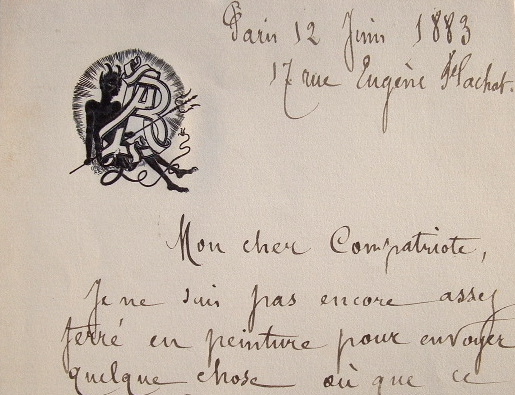 Paris 12 Juin 1883
17 rue Eugène Flachat.
Mon cher Compatriote,
Je ne suis pas encore assez
ferré en peinture pour envoyer
quelque chose où que ce